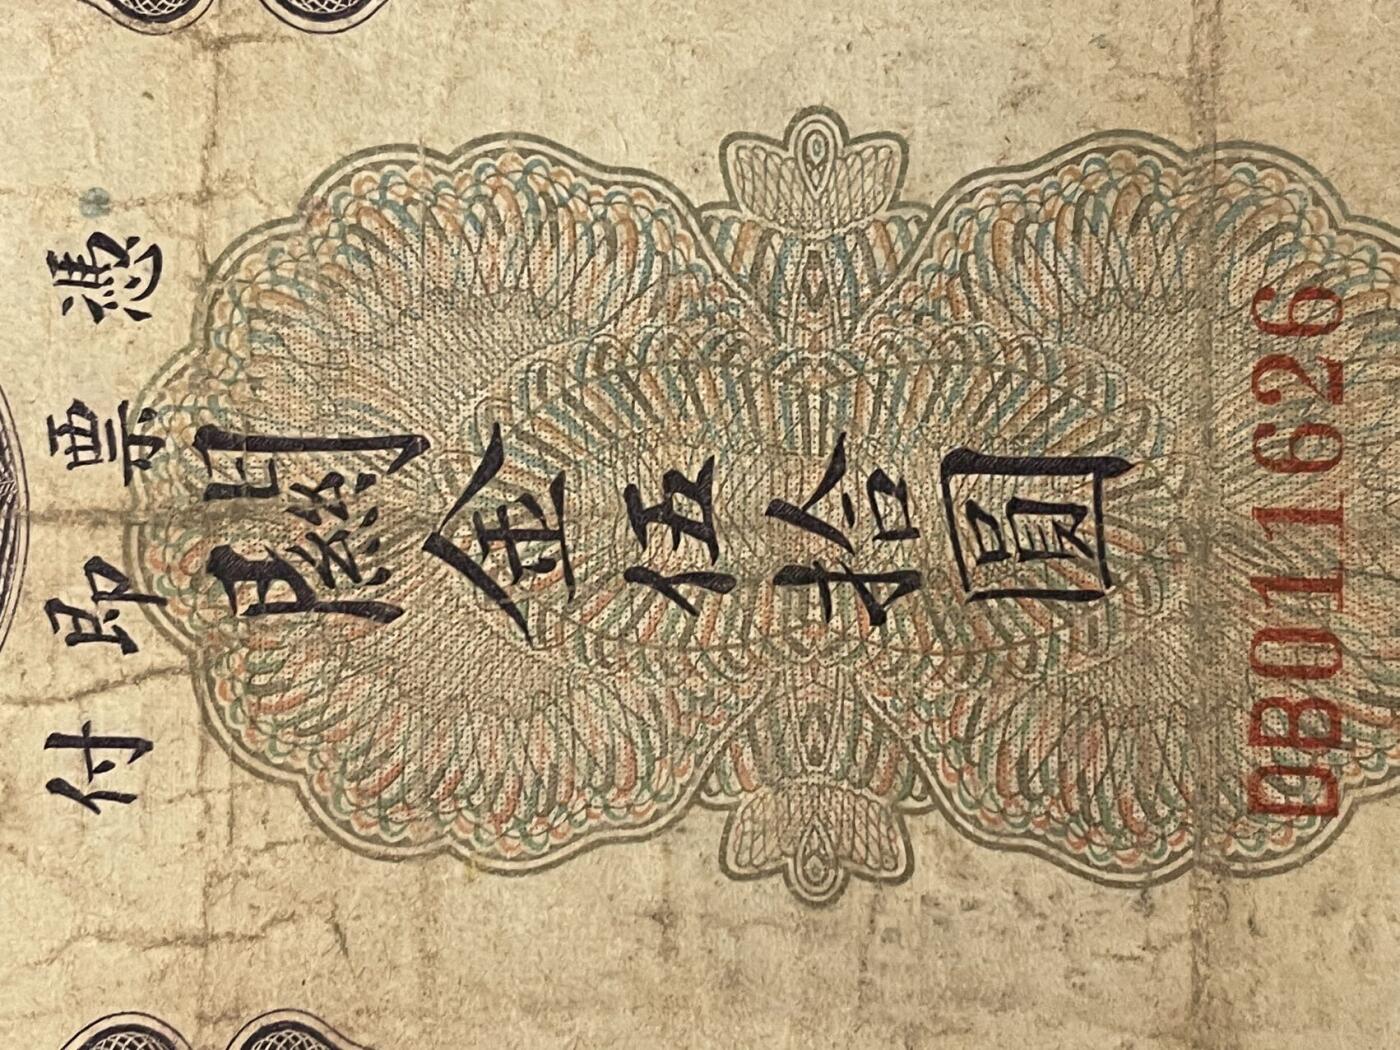 憑票即付
關金伍拾圓
QB011626